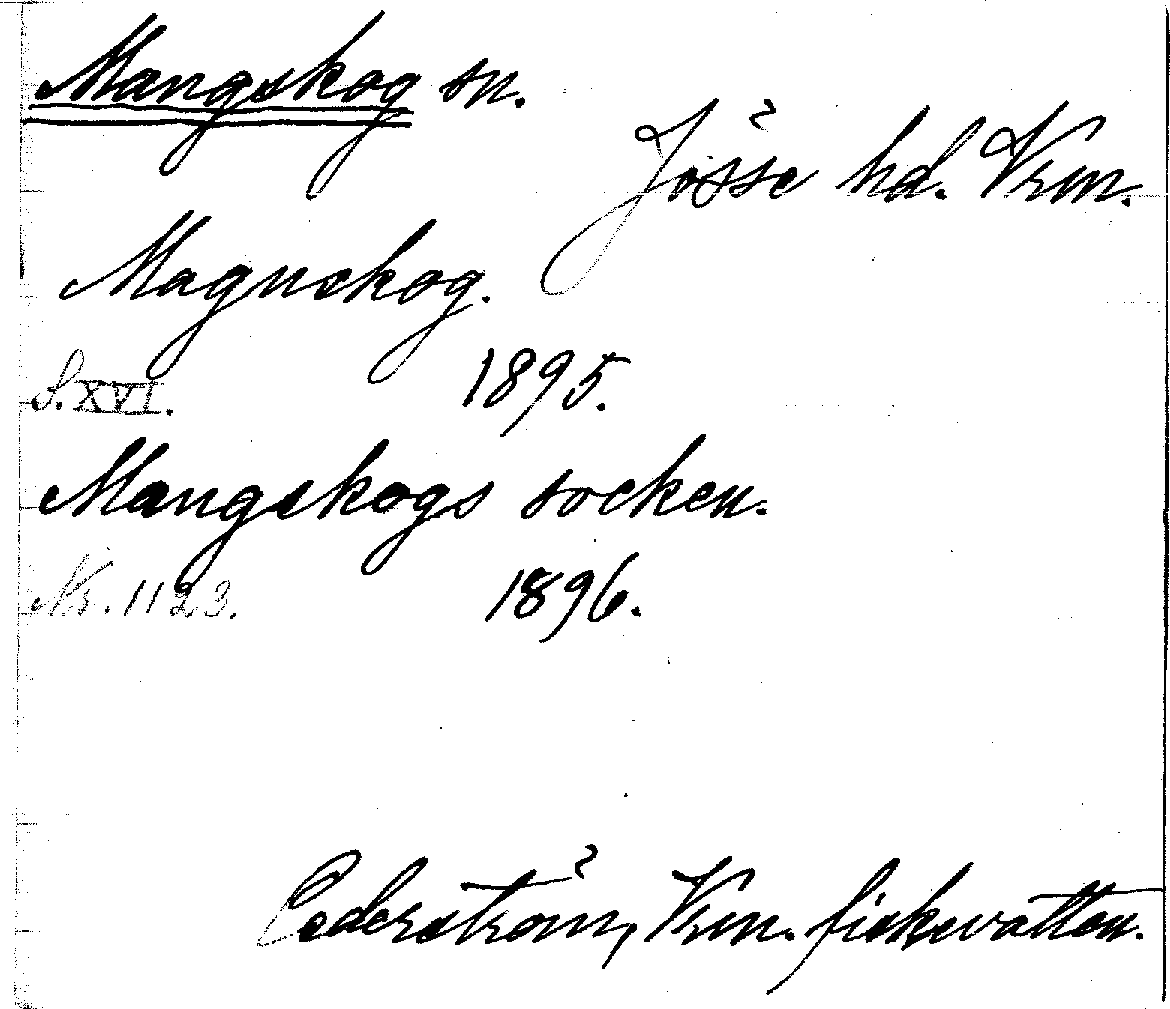 Mangskog sn.
Jösse hd. Vrm.
Magnskog.
S. XVI. 1895.
Mangskogs socken.
Nr. 1123. 1896.
Cederström, Vrm. fiskevatten.